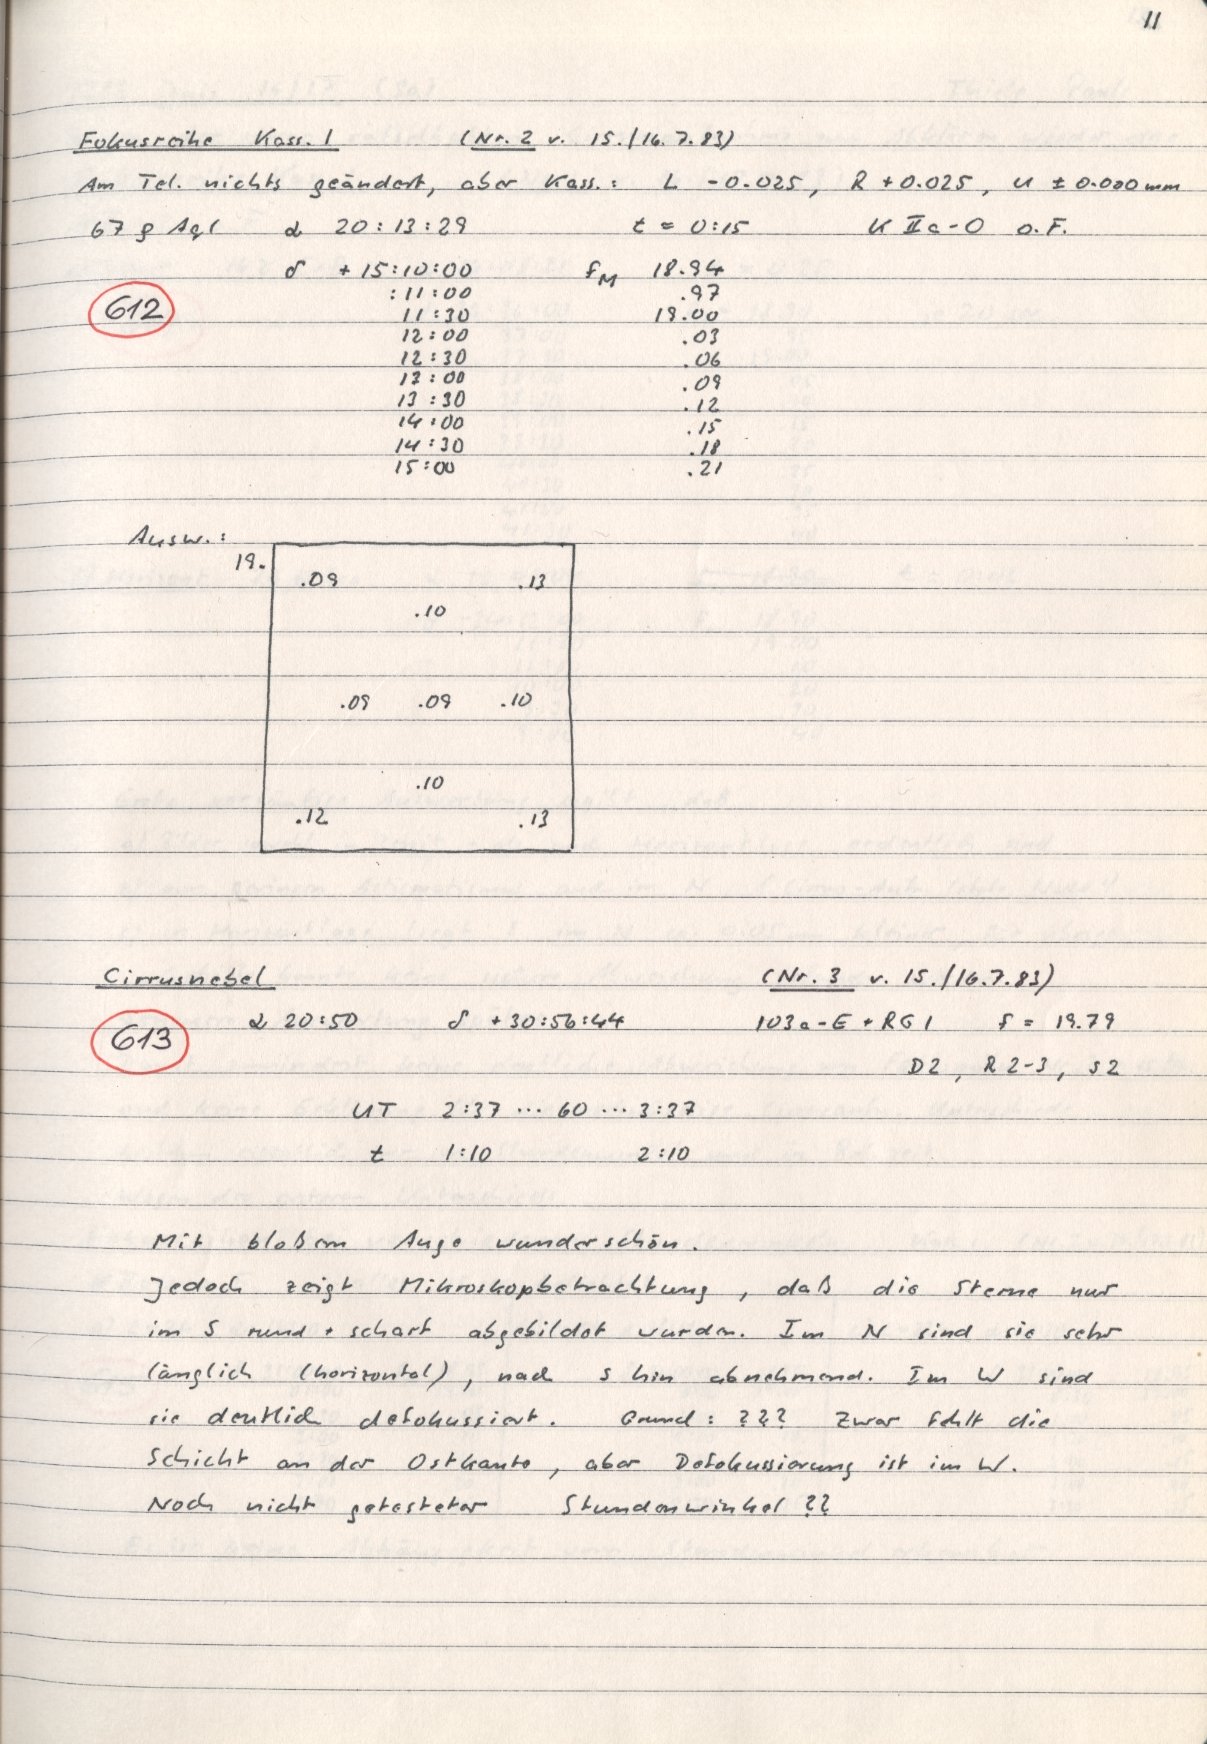 11
Fokusreihe Kass. 1 (Nr. 2 v. 15./16.7.83)
Am Tel. nichts geändert, aber Kass.: L -0.025, R +0.025, u ± 0.000 mm
67 ϱ Aql α 20:13:29 t = 0:15 K IIa-O o.F.
δ +15:10:00 fM 18.94
:11:00 .97
612
11:30 19.00
12:00 .03
12:30 .06
13:00 .09
13:30 .12
14:00 .15
14:30 .18
15:00 .21
Ausw.:
19.
.09 .13
.10
.09 .09 .10
.10
.12 .13
Cirrusnebel (Nr. 3 v. 15./16.7.83)
613
α 20:50 δ +30:56:44 103a-E + RG1 f = 19.79
D2, R2-3, S2
UT 2:37 ... 60 ... 3:37
t 1:10 2:10
Mit bloßem Auge wunderschön.
Jedoch zeigt Mikroskopbetrachtung, daß die Sterne nur
im S rund + scharf abgebildet wurden. Im N sind sie sehr
länglich (horizontal), nach S hin abnehmend. Im W sind
sie deutlich defokussiert. Grund: ??? Zwar fehlt die
Schicht an der Ostkante, aber Defokussierung ist im W.
Noch nicht getesteter Stundenwinkel ??